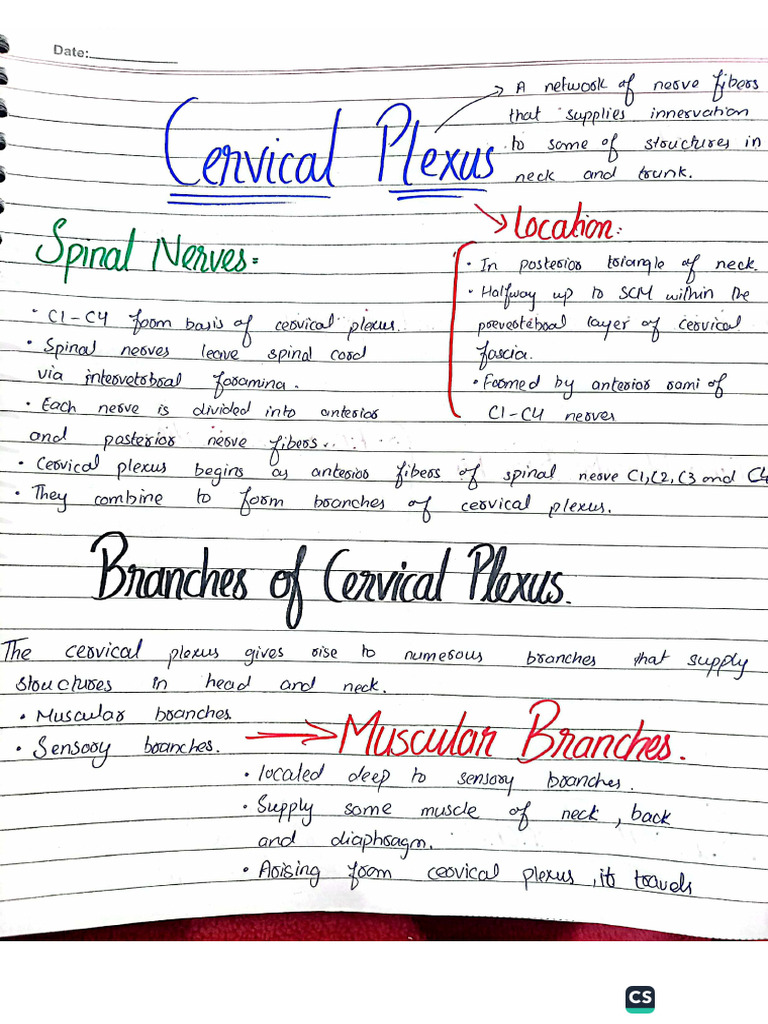 Date:
A network of nerve fibers
that supplies innervation
to some of structures in
neck and trunk.
Cervical Plexus
Location:
Spinal Nerves:
• In posterior triangle of neck.
• Halfway up to SCM within the
prevertebral layer of cervical
fascia.
• Formed by anterior rami of
C1-C4 nerves
• C1-C4 form basis of cervical plexus.
• Spinal nerves leave spinal cord
via intervetebral foramina.
• Each nerve is divided into anterior
and posterior nerve fibers..
• Cervical plexus begins as anterior fibers of spinal nerve C1,C2,C3 and C4
• They combine to form branches of cervical plexus.
Branches of Cervical Plexus.
The cervical plexus gives rise to numerous branches that supply
structures in head and neck.
• Muscular branches
• Sensory branches.
Muscular Branches.
• located deep to sensory branches.
• Supply some muscle of neck, back
and diaphragm.
• Arising form cervical plexus, it travels
CS